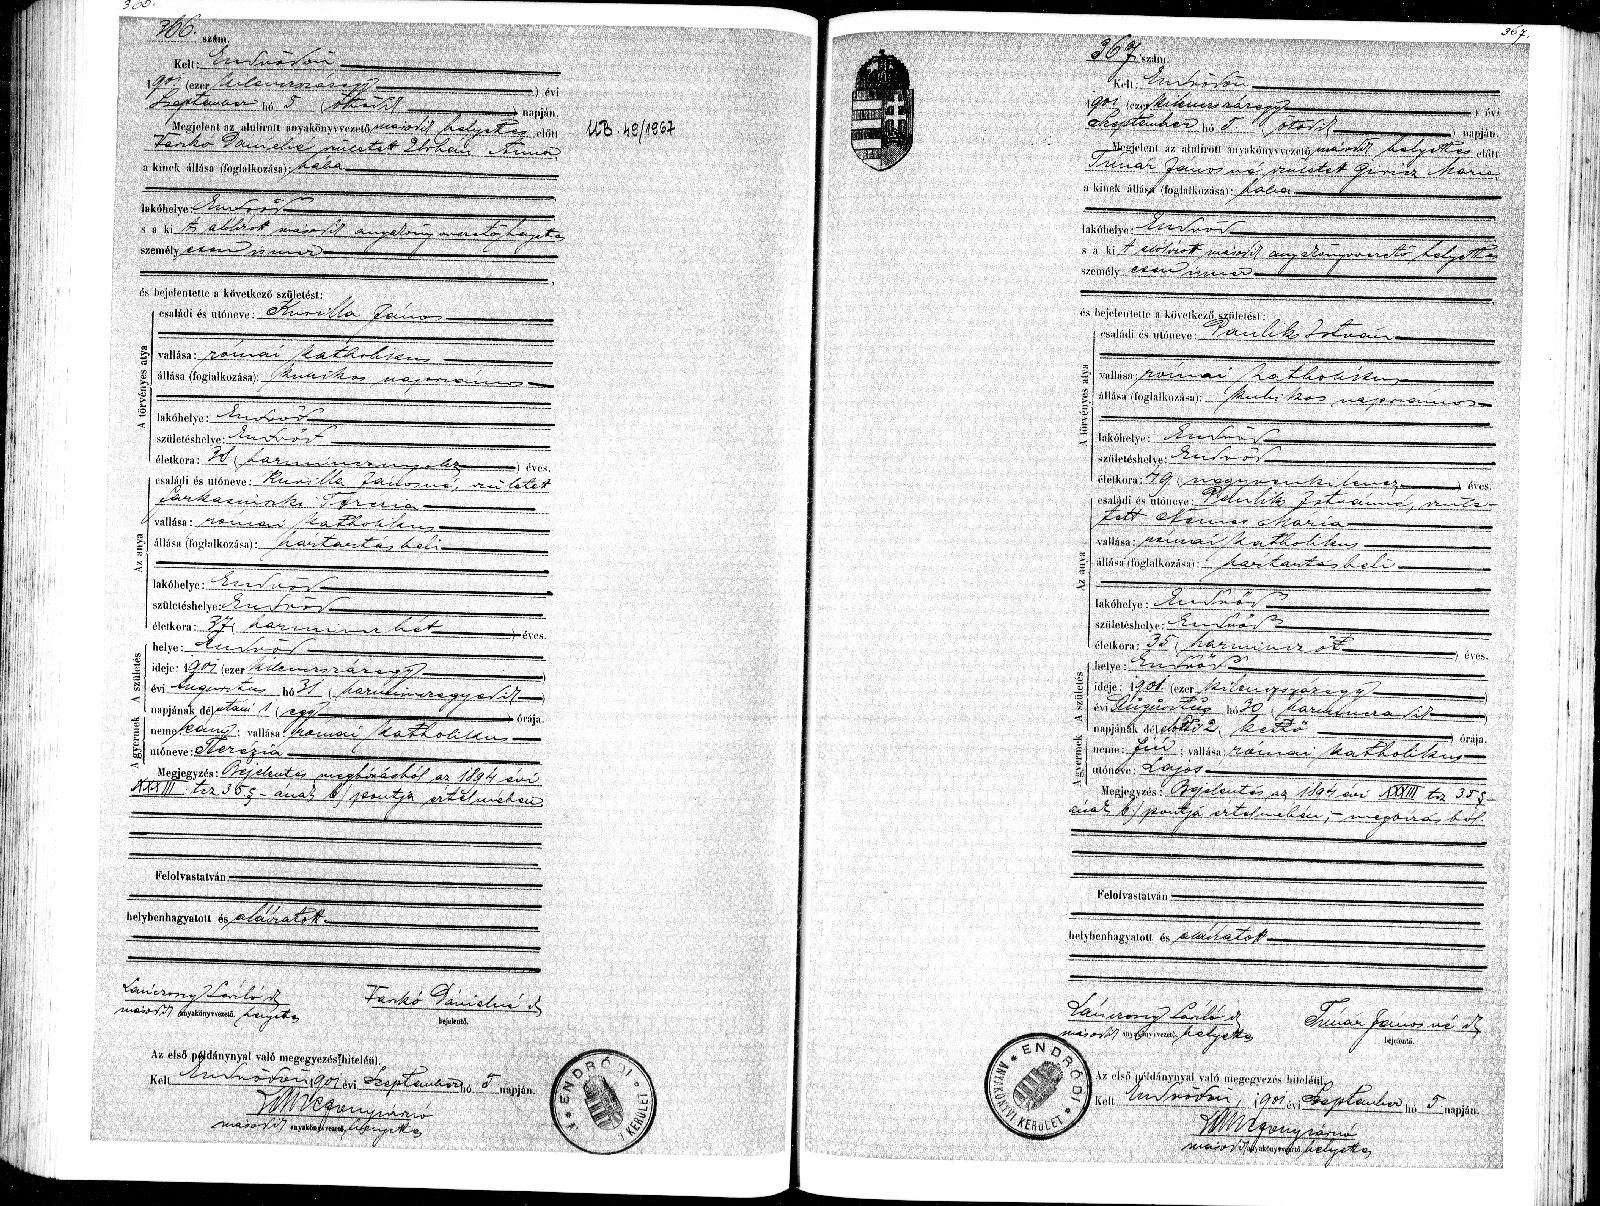 366.
366. szám.
Kelt: Endrődön
1901 (ezer kilenczszázegy) évi
Szeptember hó 5 (ötödik) napján.
Megjelent az alulirott anyakönyvvezető második helyettes előtt
Vaskó Dánielné született Anna
a kinek állása (foglalkozása): bába
lakóhelye: Endrőd
s a ki t alólirott második anyakönyvvezető helyettes
személyesen ismer
és bejelentette a következő születést:
A törvényes atya
családi és utóneve: Kurilla János
vallása: római katholikus
állása (foglalkozása): kubikos napszámos
lakóhelye: Endrőd
születéshelye: Endrőd
életkora: 38 (harmincznyolcz) éves.
Az anya
családi és utóneve: Kurilla Jánosné, született
Farkasinszki Terézia
vallása: római katholikus
állása (foglalkozása): háztartásbeli
lakóhelye: Endrőd
születéshelye: Endrőd
életkora: 37 (harminczhét) éves.
A születés
helye: Endrőd
ideje: 1901 (ezer kilenczszázegy)
évi augusztus hó 31 (harminczegyedik)
napjának délutáni 1 (egy) órája.
A gyermek
neme: leány; vallása: római katholikus
utóneve: Terézia
Megjegyzés: Bejelentés megbízásból az 1894 évi
XXXIII tcz 36 §-ának b) pontja értelmében
Felolvastatván,
helybenhagyatott és aláiratott
Lánczony László sk
második anyakönyvvezető. helyettes
Vaskó Dánielné sk
bejelentő.
Az első példánynyal való megegyezés hiteléül.
Kelt Endrődön 1901 évi Szeptember hó 5 napján.
második anyakönyvvezető, helyettes
ENDRŐDI KERÜLET
UB. 49/1967
367.
367. szám.
Kelt: Endrődön
1901 (ezer kilenczszázegy) évi
Szeptember hó 5. (ötödik) napján.
Megjelent az alulirott anyakönyvvezető második helyettes előtt
Tímár Jánosné született Mária
a kinek állása (foglalkozása): bába
lakóhelye: Endrőd
s a ki t alólirott második anyakönyvvezető helyettes
személyesen ismer
és bejelentette a következő születést:
A törvényes atya
családi és utóneve: Paulik István
vallása: római katholikus
állása (foglalkozása): kubikos napszámos
lakóhelye: Endrőd
születéshelye: Endrőd
életkora: 49 (negyvenkilencz) éves.
Az anya
családi és utóneve: Paulik Istvánné, szüle-
tett Mária
vallása: római katholikus
állása (foglalkozása): háztartásbeli
lakóhelye: Endrőd
születéshelye: Endrőd
életkora: 35 (harminczöt) éves.
A születés
helye: Endrőd
ideje: 1901. (ezer kilenczszázegy)
évi Augusztus hó 30 (harminczadik)
napjának délelőtti 2 (kettő) órája.
A gyermek
neme: fiú; vallása: római katholikus
utóneve: Lajos
Megjegyzés: Bejelentés az 1894 évi XXXIII tcz 35 §-
ának b) pontja értelmében, megbízásból
Felolvastatván
helybenhagyatott és aláiratott
Lánczony László sk
második anyakönyvvezető, helyettes
Tímár Jánosné sk
bejelentő.
Az első példánynyal való megegyezés hiteléül.
Kelt Endrődön, 1901 évi Szeptember hó 5 napján.
második anyakönyvvezető. helyettes
ENDRŐDI ANYAKÖNYVI KERÜLET